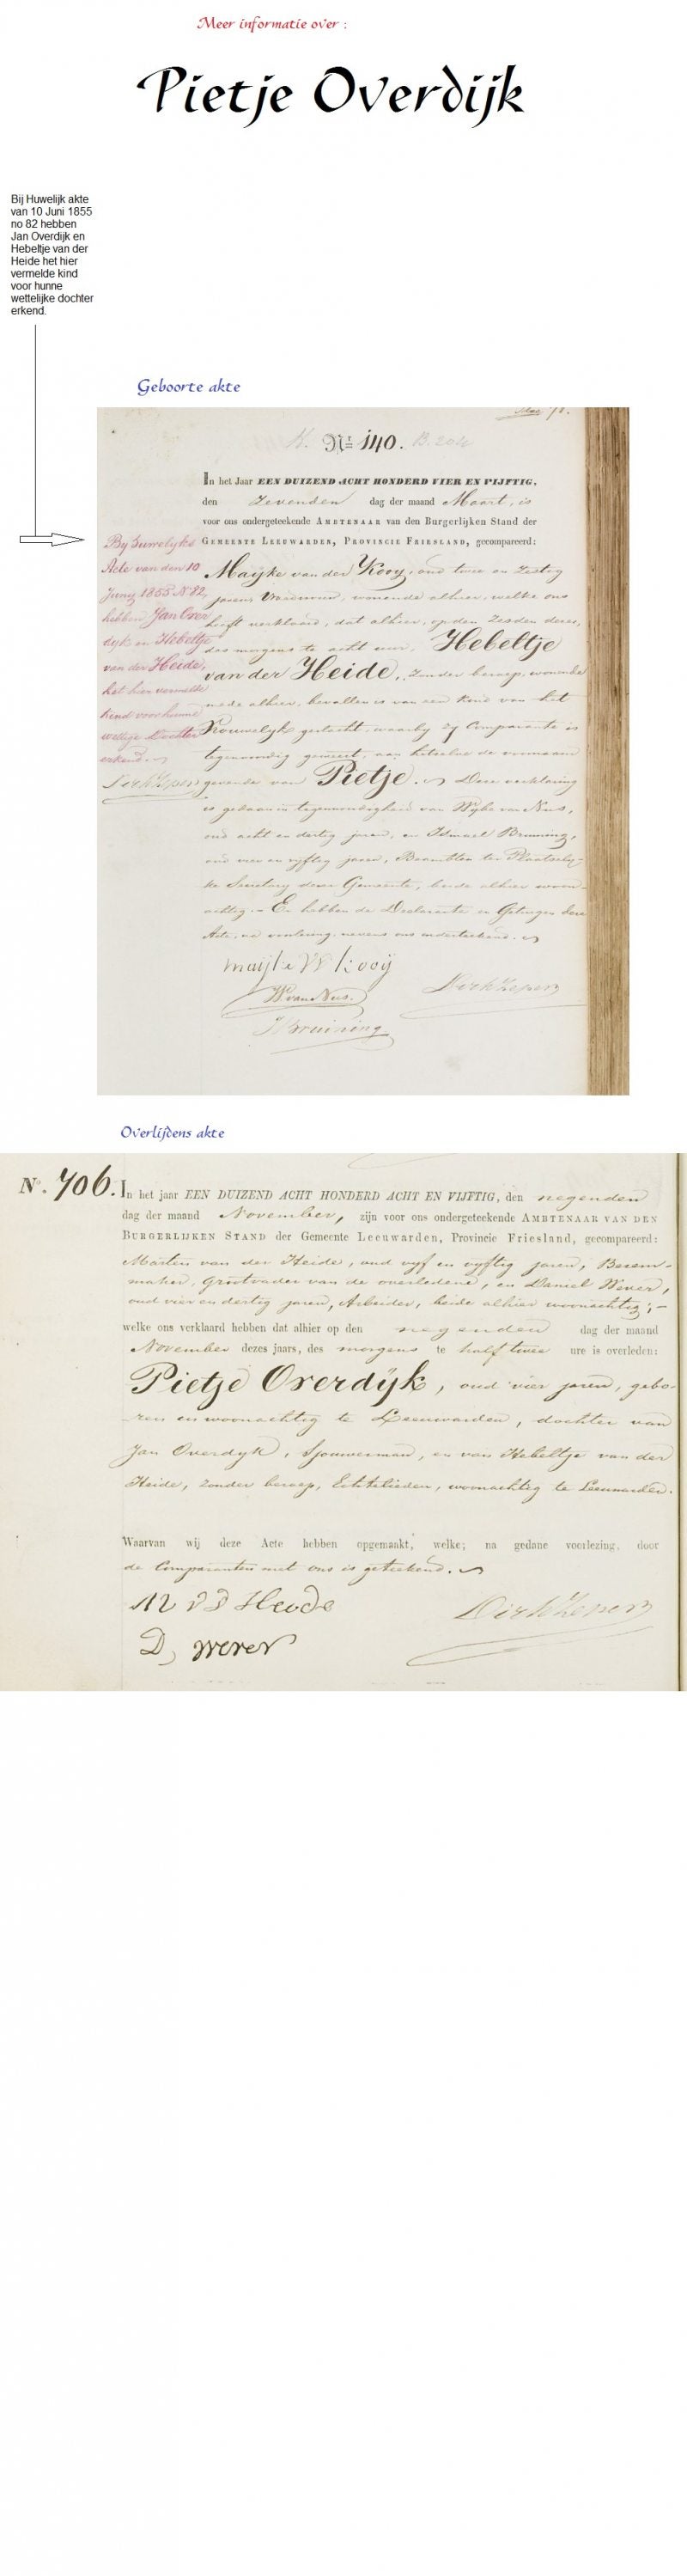 Meer informatie over :
Pietje Overdijk
Bij Huwelijk akte
van 10 Juni 1855
no 82 hebben
Jan Overdijk en
Hebeltje van der
Heide het hier
vermelde kind
voor hunne
wettelijke dochter
erkend.
Geboorte akte
No 140.
In het Jaar EEN DUIZEND ACHT HONDERD VIER EN VIJFTIG,
den Zevenden dag der maand Maart, is
voor ons ondergeteekende AMBTENAAR van den Burgerlijken Stand der
GEMEENTE LEEUWARDEN, PROVINCIE FRIESLAND, gecompareerd:
By Huwelyks
Acte van den 10
Juny 1855 N 82,
hebben Jan Over
dyk en Hebeltje
van der Heide,
het hier vermelde
kind voor hunne
wettige dochter
erkend.
Maijke van der Kooy, oud twee en zestig
jaren, Vroedvrouw, wonende alhier, welke ons
heeft verklaard, dat alhier, op den Zesden dezer,
des morgens te acht ure, Hebeltje
van der Heide, zonder beroep, wonende
mede alhier, bevallen is van een Kind van het
Vrouwelyk geslacht, waarby zy Comparante is
tegenwoordig geweest, aan hetzelve de voornaam
gevende van Pietje. Deze verklaring
is gedaan in tegenwoordigheid van Wybe van Nus,
oud acht en dertig jaren, en Ismael Bruining,
oud vier en vyftig jaren, Beambten ter Plaatsely-
ke Secretary dezer Gemeente, beide alhier woon-
achtig. - En hebben de Declarante en Getuigen deze
Acte, na voorlezing, nevens ons onderteekend.
maijke VD kooij
W. van Nus.
I Bruining
Overlijdens akte
No. 706. In het jaar EEN DUIZEND ACHT HONDERD ACHT EN VIJFTIG, den negenden
dag der maand November, zijn voor ons ondergeteekende AMBTENAAR VAN DEN
BURGERLIJKEN STAND der Gemeente Leeuwarden, Provincie Friesland, gecompareerd:
Marten van der Heide, oud vyf en vyftig jaren, Bezem-
maker, Grootvader van de overledene, en Daniel Wever,
oud vier en dertig jaren, Arbeider, beide alhier woonachtig; -
welke ons verklaard hebben dat alhier op den negenden dag der maand
November dezes jaars, des morgens te half twee ure is overleden:
Pietje Overdÿk, oud vier jaren, gebo-
ren en woonachtig te Leeuwarden, dochter van
Jan Overdyk, Sjouwerman, en van Hebeltje van der
Heide, zonder beroep, Echtelieden, woonachtig te Leeuwarden.
Waarvan wij deze Acte hebben opgemaakt, welke; na gedane voorlezing, door
de Comparanten met ons is geteekend.
M V D Heide
D, wever